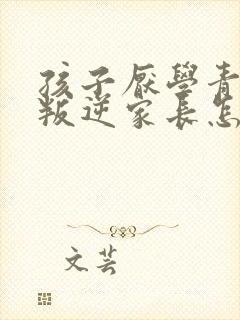 孩子厭學青
叛逆家長怎
文芸